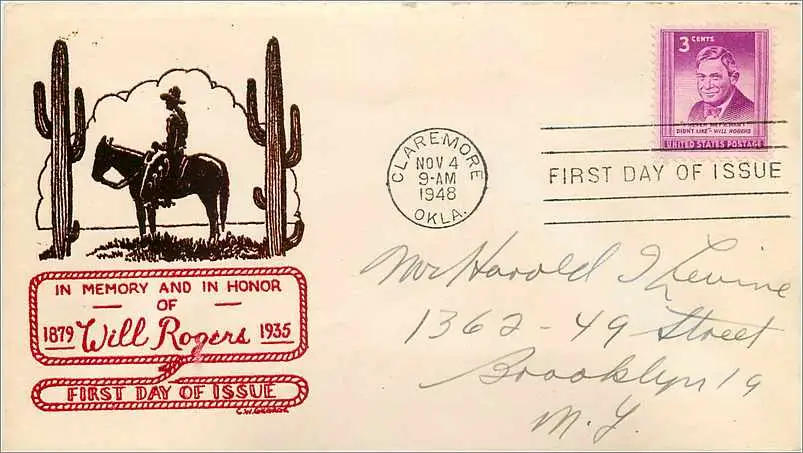 IN MEMORY AND IN HONOR
OF
1879 Will Rogers 1935
FIRST DAY OF ISSUE
C.W. GEORGE
CLAREMORE
NOV 4
9-AM
1948
OKLA.
3 CENTS
"I NEVER MET A MAN I
DIDN'T LIKE" - WILL ROGERS
UNITED STATES POSTAGE
FIRST DAY OF ISSUE
Mr Harold I Levine
1362-49 Street
Brooklyn 19
N.Y.